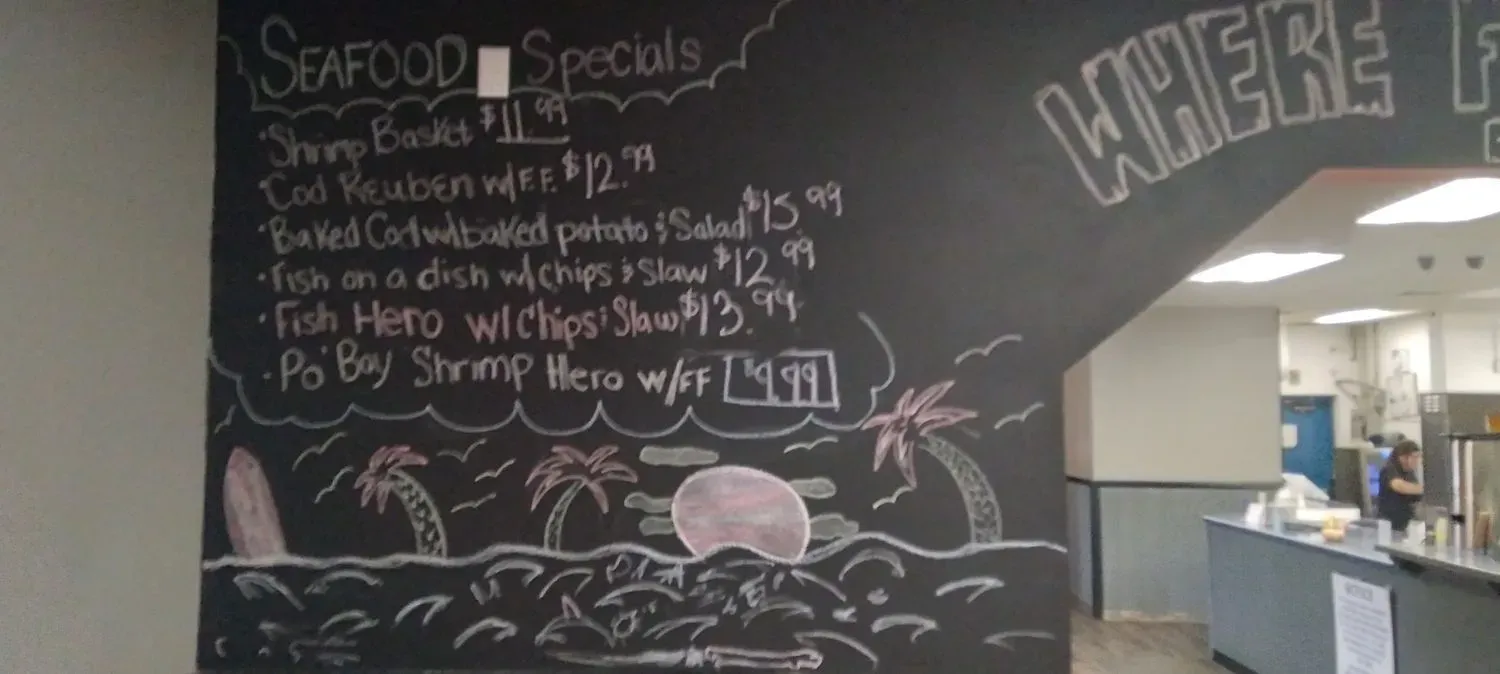 SEAFOOD Specials
• Shrimp Basket $11.99
• Cod Reuben w/F.F. $12.99
• Baked Cod w/baked potato & Salad $15.99
• Fish on a dish w/chips & Slaw $12.99
• Fish Hero w/Chips & Slaw $13.99
• Po' Bay Shrimp Hero w/FF $9.99
WHERE F
NOTICE